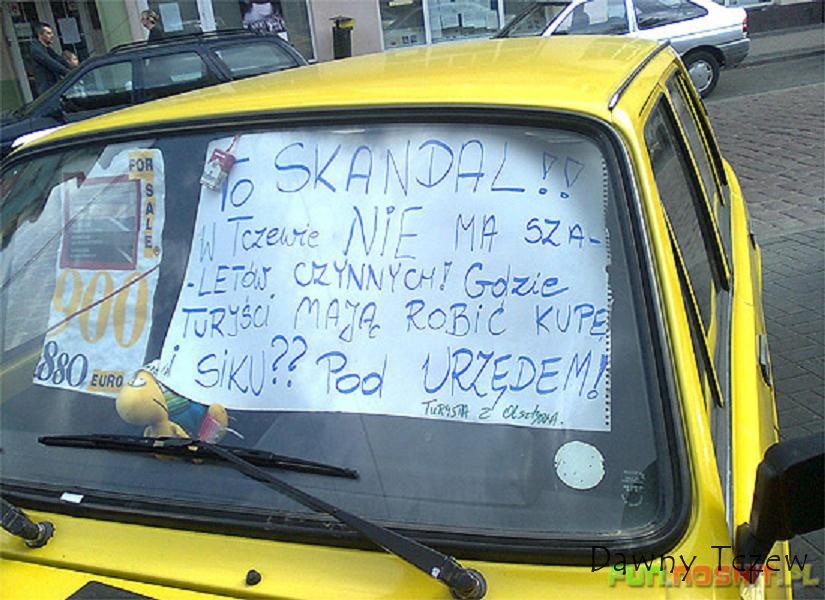 FOR SALE
900
880 EURO
To SKANDAL!!
W Tczewie NIE MA SZA-
-LETÓW CZYNNYCH! Gdzie
TURYŚCI MAJĄ ROBIĆ KUPĘ
i SIKU?? Pod URZĘDEM!
TURYSTA Z Olsztyna.
Dawny Tczew